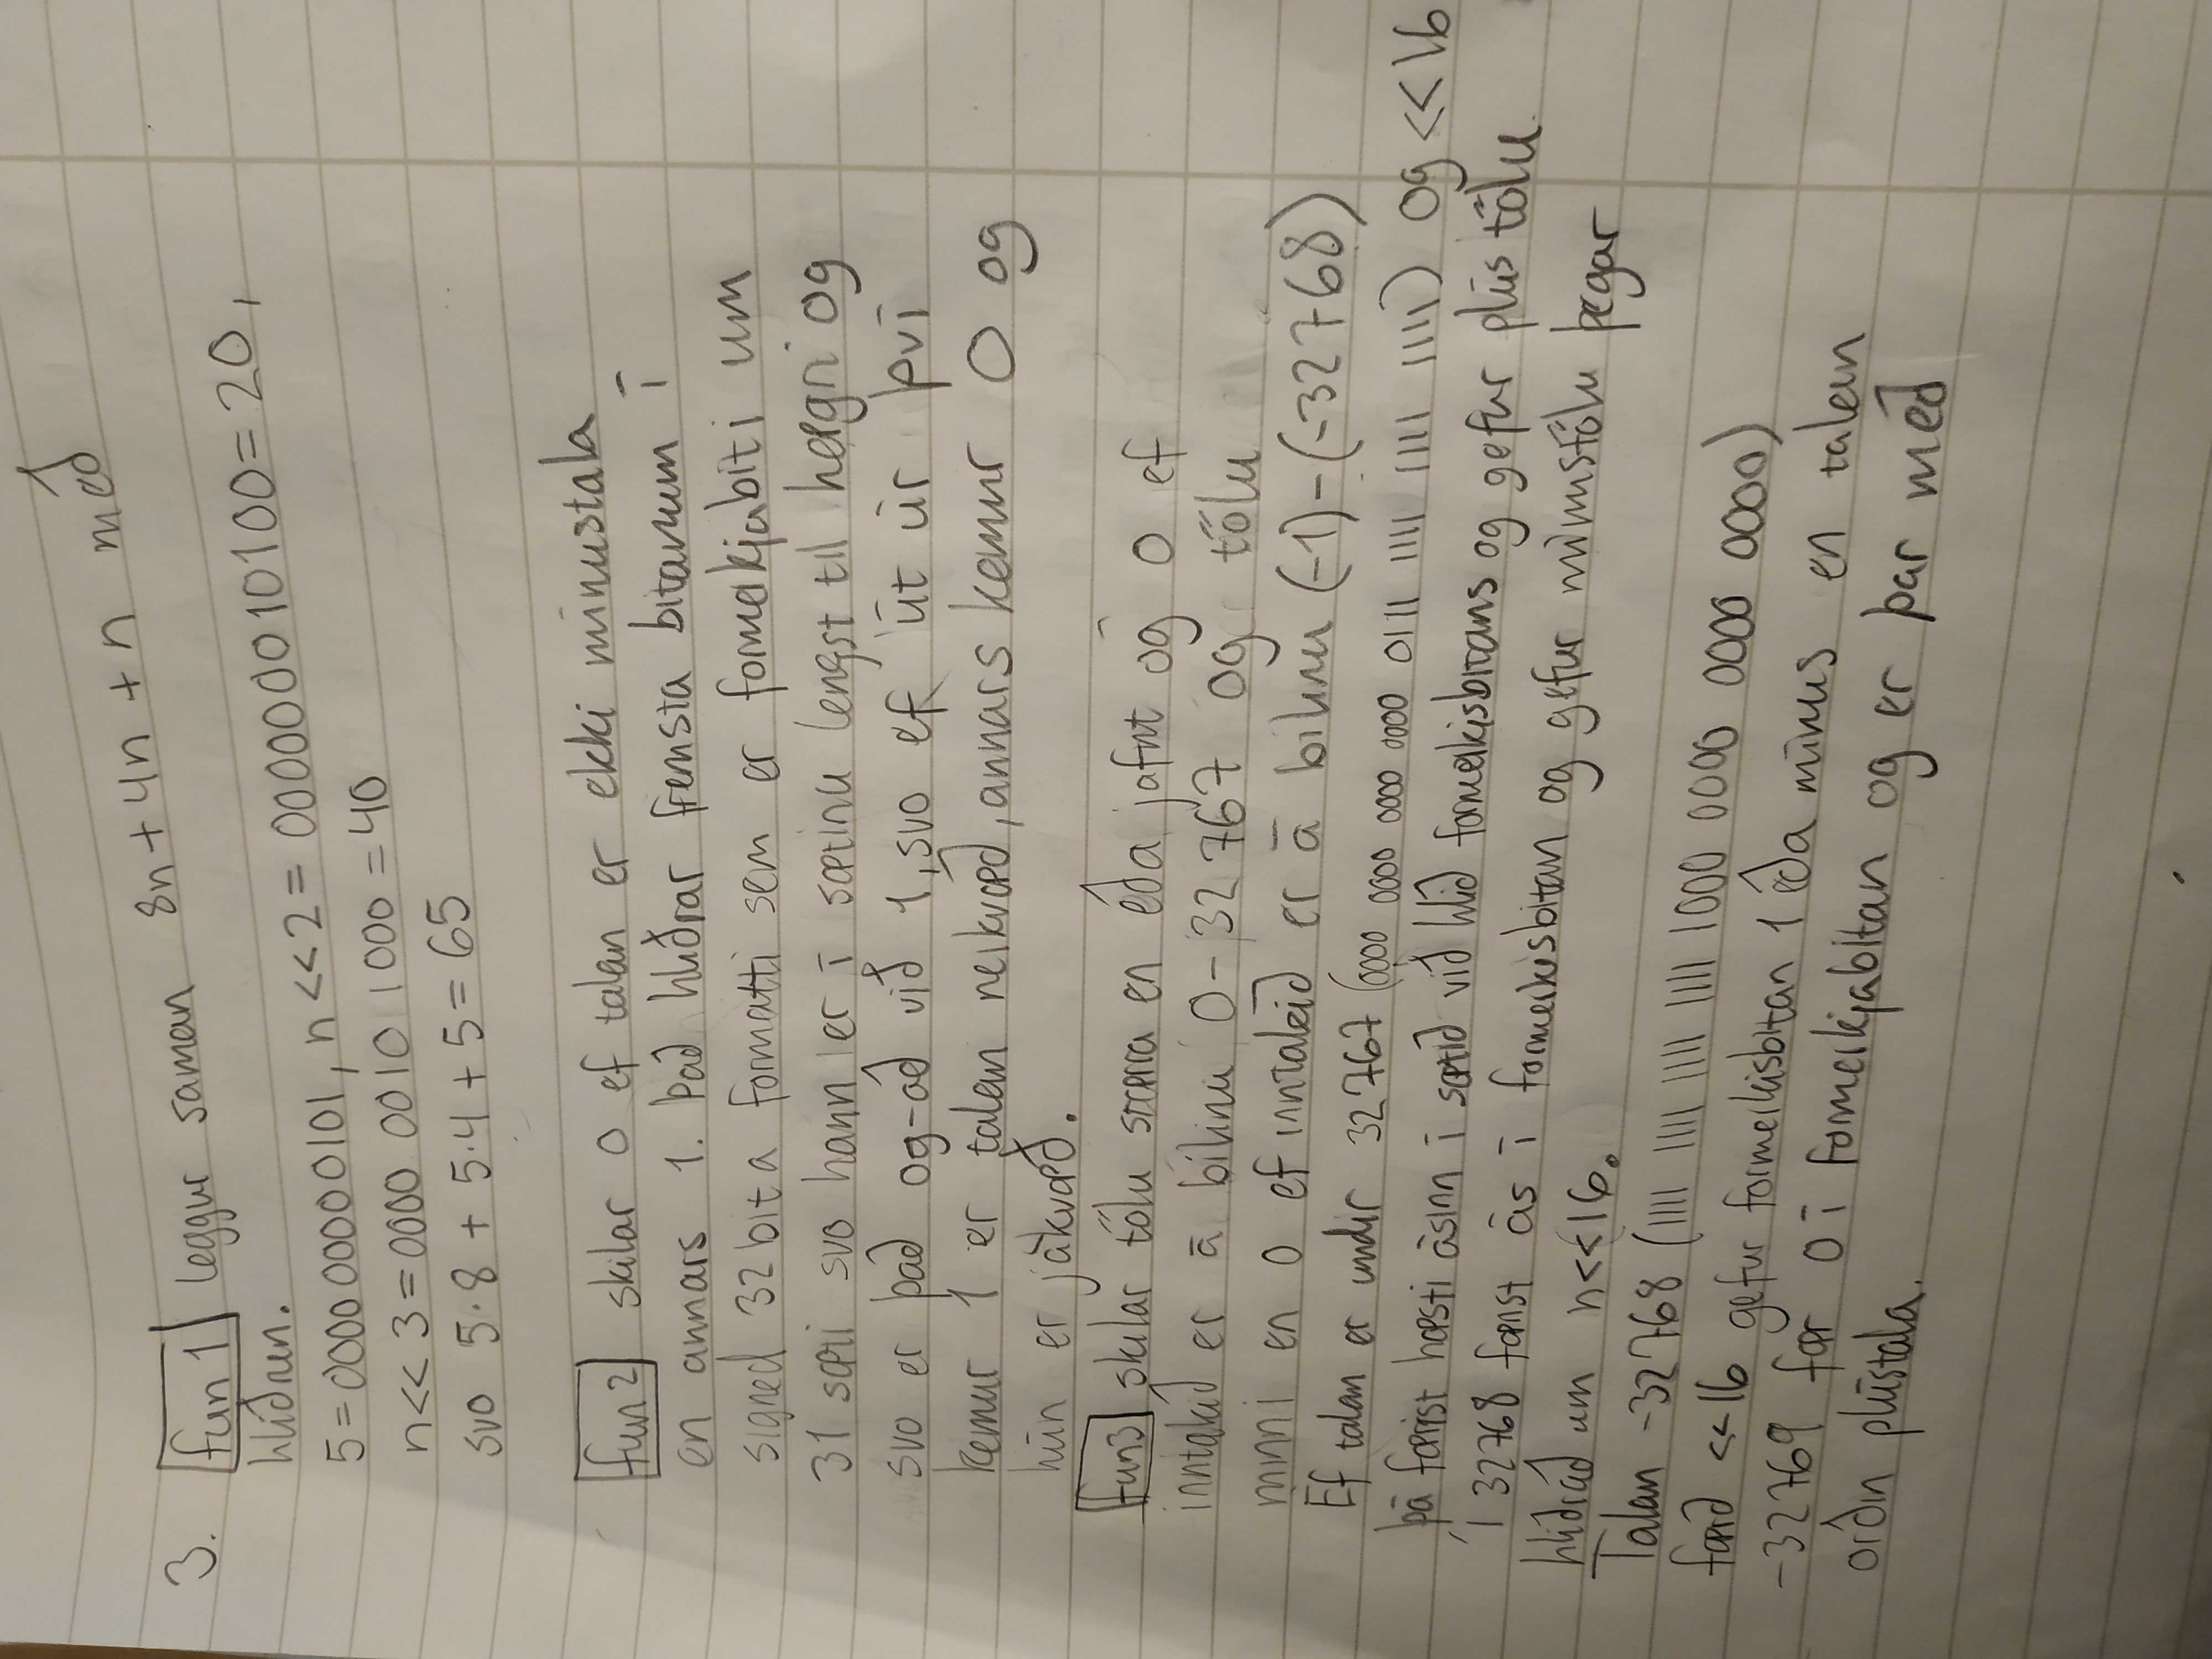 3. fun 1 leggur saman 8n + 4n + n með
hliðrun.
5 = 0000 00000101, n<<2 = 000000010100 = 20,
n<< 3 = 0000 0010 1000 = 40
svo 5·8 + 5·4 + 5 = 65
fun 2 skilar 0 ef talan er ekki mínustala
en annars 1. Það hliðrar fremsta bitanum í
signed 32 bita formatti sem er formerkjabiti um
31 sæti svo hann er í sætinu lengst til hægri og
svo er það og-að við 1, svo ef út úr því
kemur 1 er talan neikvæð, annars kemur 0 og
hún er jákvæð.
fun3 skilar tölu stærra en eða jafnt og 0 ef
inntakið er á bilinu 0 - 32 767 og tölu
minni en 0 ef inntakið er á bilinu (-1) - (-32768)
Ef talan er undir 32767 (0000 0000 0000 0000 0111 1111 1111 1111) og <<16
þá færist hæsti ásinn í sætið við hlið formerkisbitans og gefur plús tölu.
Í 32768 færist ás í formerkisbitan og gefur mínustölu þegar
hliðrað um n<<16.
Talan -32768 (1111 1111 1111 1111 1000 0000 0000 0000)
færð <<16 gefur formerkisbitan 1 eða mínus en talan
-32769 fær 0 í formerkjabitan og er þar með
orðin plústala.